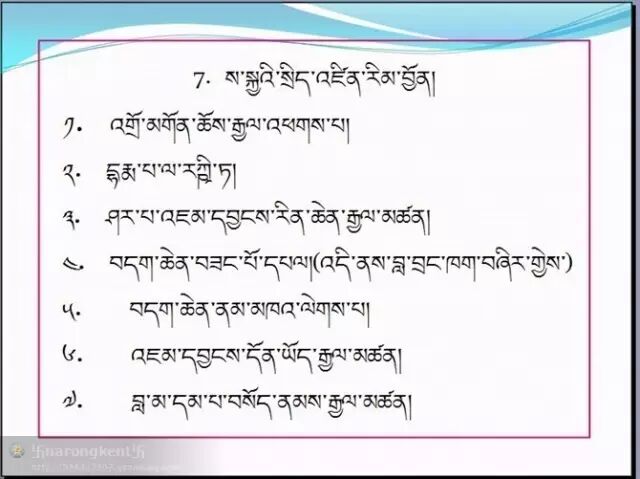 7. ས་སྐྱའི་སྲིད་འཛིན་རིམ་བྱོན།
༡. འགྲོ་མགོན་ཆོས་རྒྱལ་འཕགས་པ།
༢. དྷརྨ་པ་ལ་རཀྵི་ཏ།
༣. ཤར་པ་འཇམ་དབྱངས་རིན་ཆེན་རྒྱལ་མཚན།
༤. བདག་ཆེན་བཟང་པོ་དཔལ།(འདི་ནས་བླ་བྲང་ཁག་བཞིར་གྱེས་)
༥. བདག་ཆེན་ནམ་མཁའ་ལེགས་པ།
༦. འཇམ་དབྱངས་དོན་ཡོད་རྒྱལ་མཚན།
༧. བླ་མ་དམ་པ་བསོད་ནམས་རྒྱལ་མཚན།
卐narongkent卐